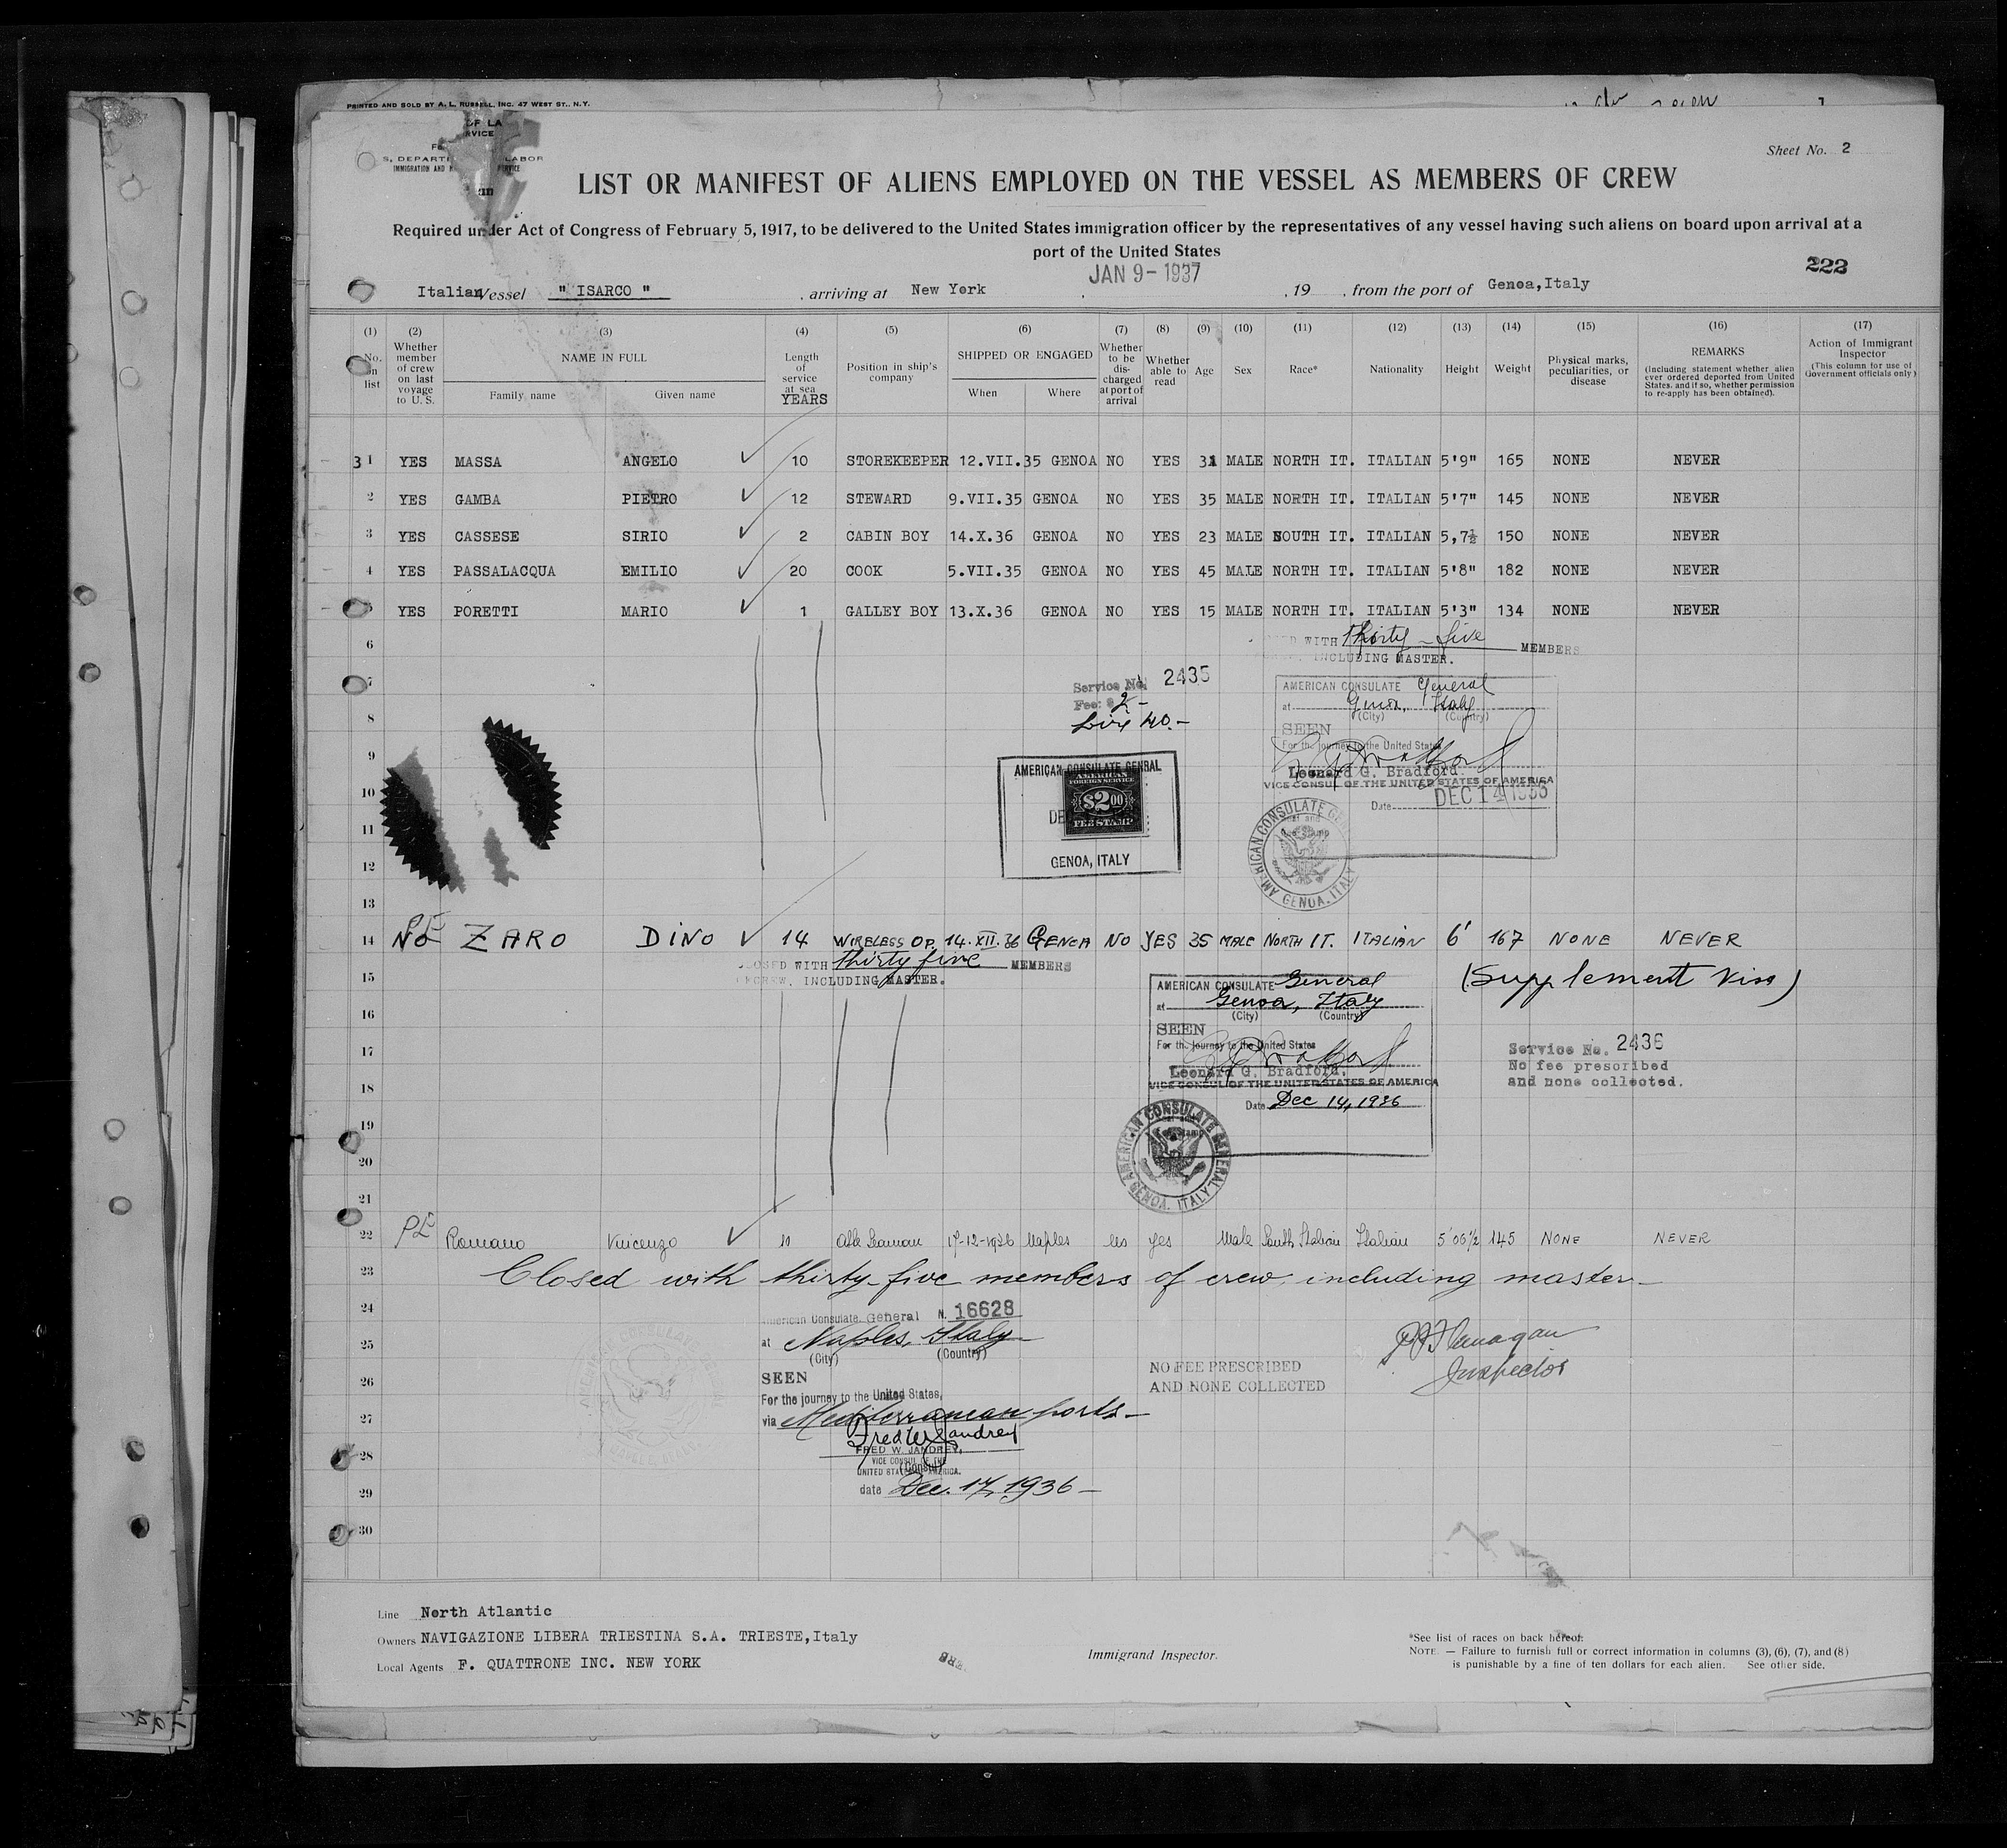 PRINTED AND SOLD BY A. L. RUSSELL, INC. 47 WEST ST., N.Y.
Sheet No. 2
LIST OR MANIFEST OF ALIENS EMPLOYED ON THE VESSEL AS MEMBERS OF CREW
Required under Act of Congress of February 5, 1917, to be delivered to the United States immigration officer by the representatives of any vessel having such aliens on board upon arrival at a
port of the United States
222
Italian Vessel " ISARCO " , arriving at New York JAN 9 - 1937 , 19 , from the port of Genoa, Italy
(1) No. on list
(2) Whether member of crew on last voyage to U. S.
(3) NAME IN FULL Family name Given name
(4) Length of service at sea YEARS
(5) Position in ship's company
(6) SHIPPED OR ENGAGED When Where
(7) Whether to be discharged at port of arrival
(8) Whether able to read
(9) Age
(10) Sex
(11) Race*
(12) Nationality
(13) Height
(14) Weight
(15) Physical marks, peculiarities, or disease
(16) REMARKS (Including statement whether alien ever ordered deported from United States, and if so, whether permission to re-apply has been obtained).
(17) Action of Immigrant Inspector (This column for use of Government officials only)
31 YES MASSA ANGELO 10 STOREKEEPER 12.VII.35 GENOA NO YES 31 MALE NORTH IT. ITALIAN 5'9" 165 NONE NEVER
2 YES GAMBA PIETRO 12 STEWARD 9.VII.35 GENOA NO YES 35 MALE NORTH IT. ITALIAN 5'7" 145 NONE NEVER
3 YES CASSESE SIRIO 2 CABIN BOY 14.X.36 GENOA NO YES 23 MALE SOUTH IT. ITALIAN 5,7½ 150 NONE NEVER
4 YES PASSALACQUA EMILIO 20 COOK 5.VII.35 GENOA NO YES 45 MALE NORTH IT. ITALIAN 5'8" 182 NONE NEVER
5 YES PORETTI MARIO 1 GALLEY BOY 13.X.36 GENOA NO YES 15 MALE NORTH IT. ITALIAN 5'3" 134 NONE NEVER
6
WITH thirty-five MEMBERS
INCLUDING MASTER.
7
Service No. 2435
Fee: $ 2-
Lire 40.-
AMERICAN CONSULATE General
at Genoa, Italy
(City) (Country)
SEEN
For the journey to the United States
Leonard G. Bradford
VICE CONSUL OF THE UNITED STATES OF AMERICA
Date DEC 14 1936
8
9
10
11
12
13
AMERICAN CONSULATE GENRAL
AMERICAN
FOREIGN SERVICE
$2.00
FEE STAMP
GENOA, ITALY
AMERICAN CONSULATE GENOA, ITALY
14 NO PE ZARO DINO 14 WIRELESS OP. 14.XII.36 GENOA NO YES 35 MALE NORTH IT. ITALIAN 6' 167 NONE NEVER
CLOSED WITH thirty five MEMBERS
CREW, INCLUDING MASTER.
(Supplement Visa)
15
16
17
18
19
20
21
AMERICAN CONSULATE General
at Genoa, Italy
(City) (Country)
SEEN
For the journey to the United States
Leonard G. Bradford.
VICE CONSUL OF THE UNITED STATES OF AMERICA
Date Dec 14, 1936
Service No. 2436
No fee prescribed
and none collected.
AMERICAN CONSULATE GENERAL GENOA, ITALY
22 PE Romano Vincenzo 10 Able Seaman 17-12-1936 Naples no yes Male South Italian Italian 5'06½ 145 NONE NEVER
23 Closed with thirty-five members of crew including master-
24
25
26
27
28
29
30
American Consulate General N. 16628
at Naples, Italy
(City) (Country)
SEEN
For the journey to the United States,
via Mediterranean ports-
Fred W. Jandrey
FRED W. JANDREY,
VICE CONSUL OF THE
UNITED STATES OF AMERICA.
(Consul)
date Dec. 17, 1936-
NO FEE PRESCRIBED
AND NONE COLLECTED
Flanagan
Inspector
Line North Atlantic
Owners NAVIGAZIONE LIBERA TRIESTINA S.A. TRIESTE, Italy
Local Agents F. QUATTRONE INC. NEW YORK
Immigrand Inspector.
*See list of races on back hereof.
NOTE. — Failure to furnish full or correct information in columns (3), (6), (7), and (8)
is punishable by a fine of ten dollars for each alien. See other side.